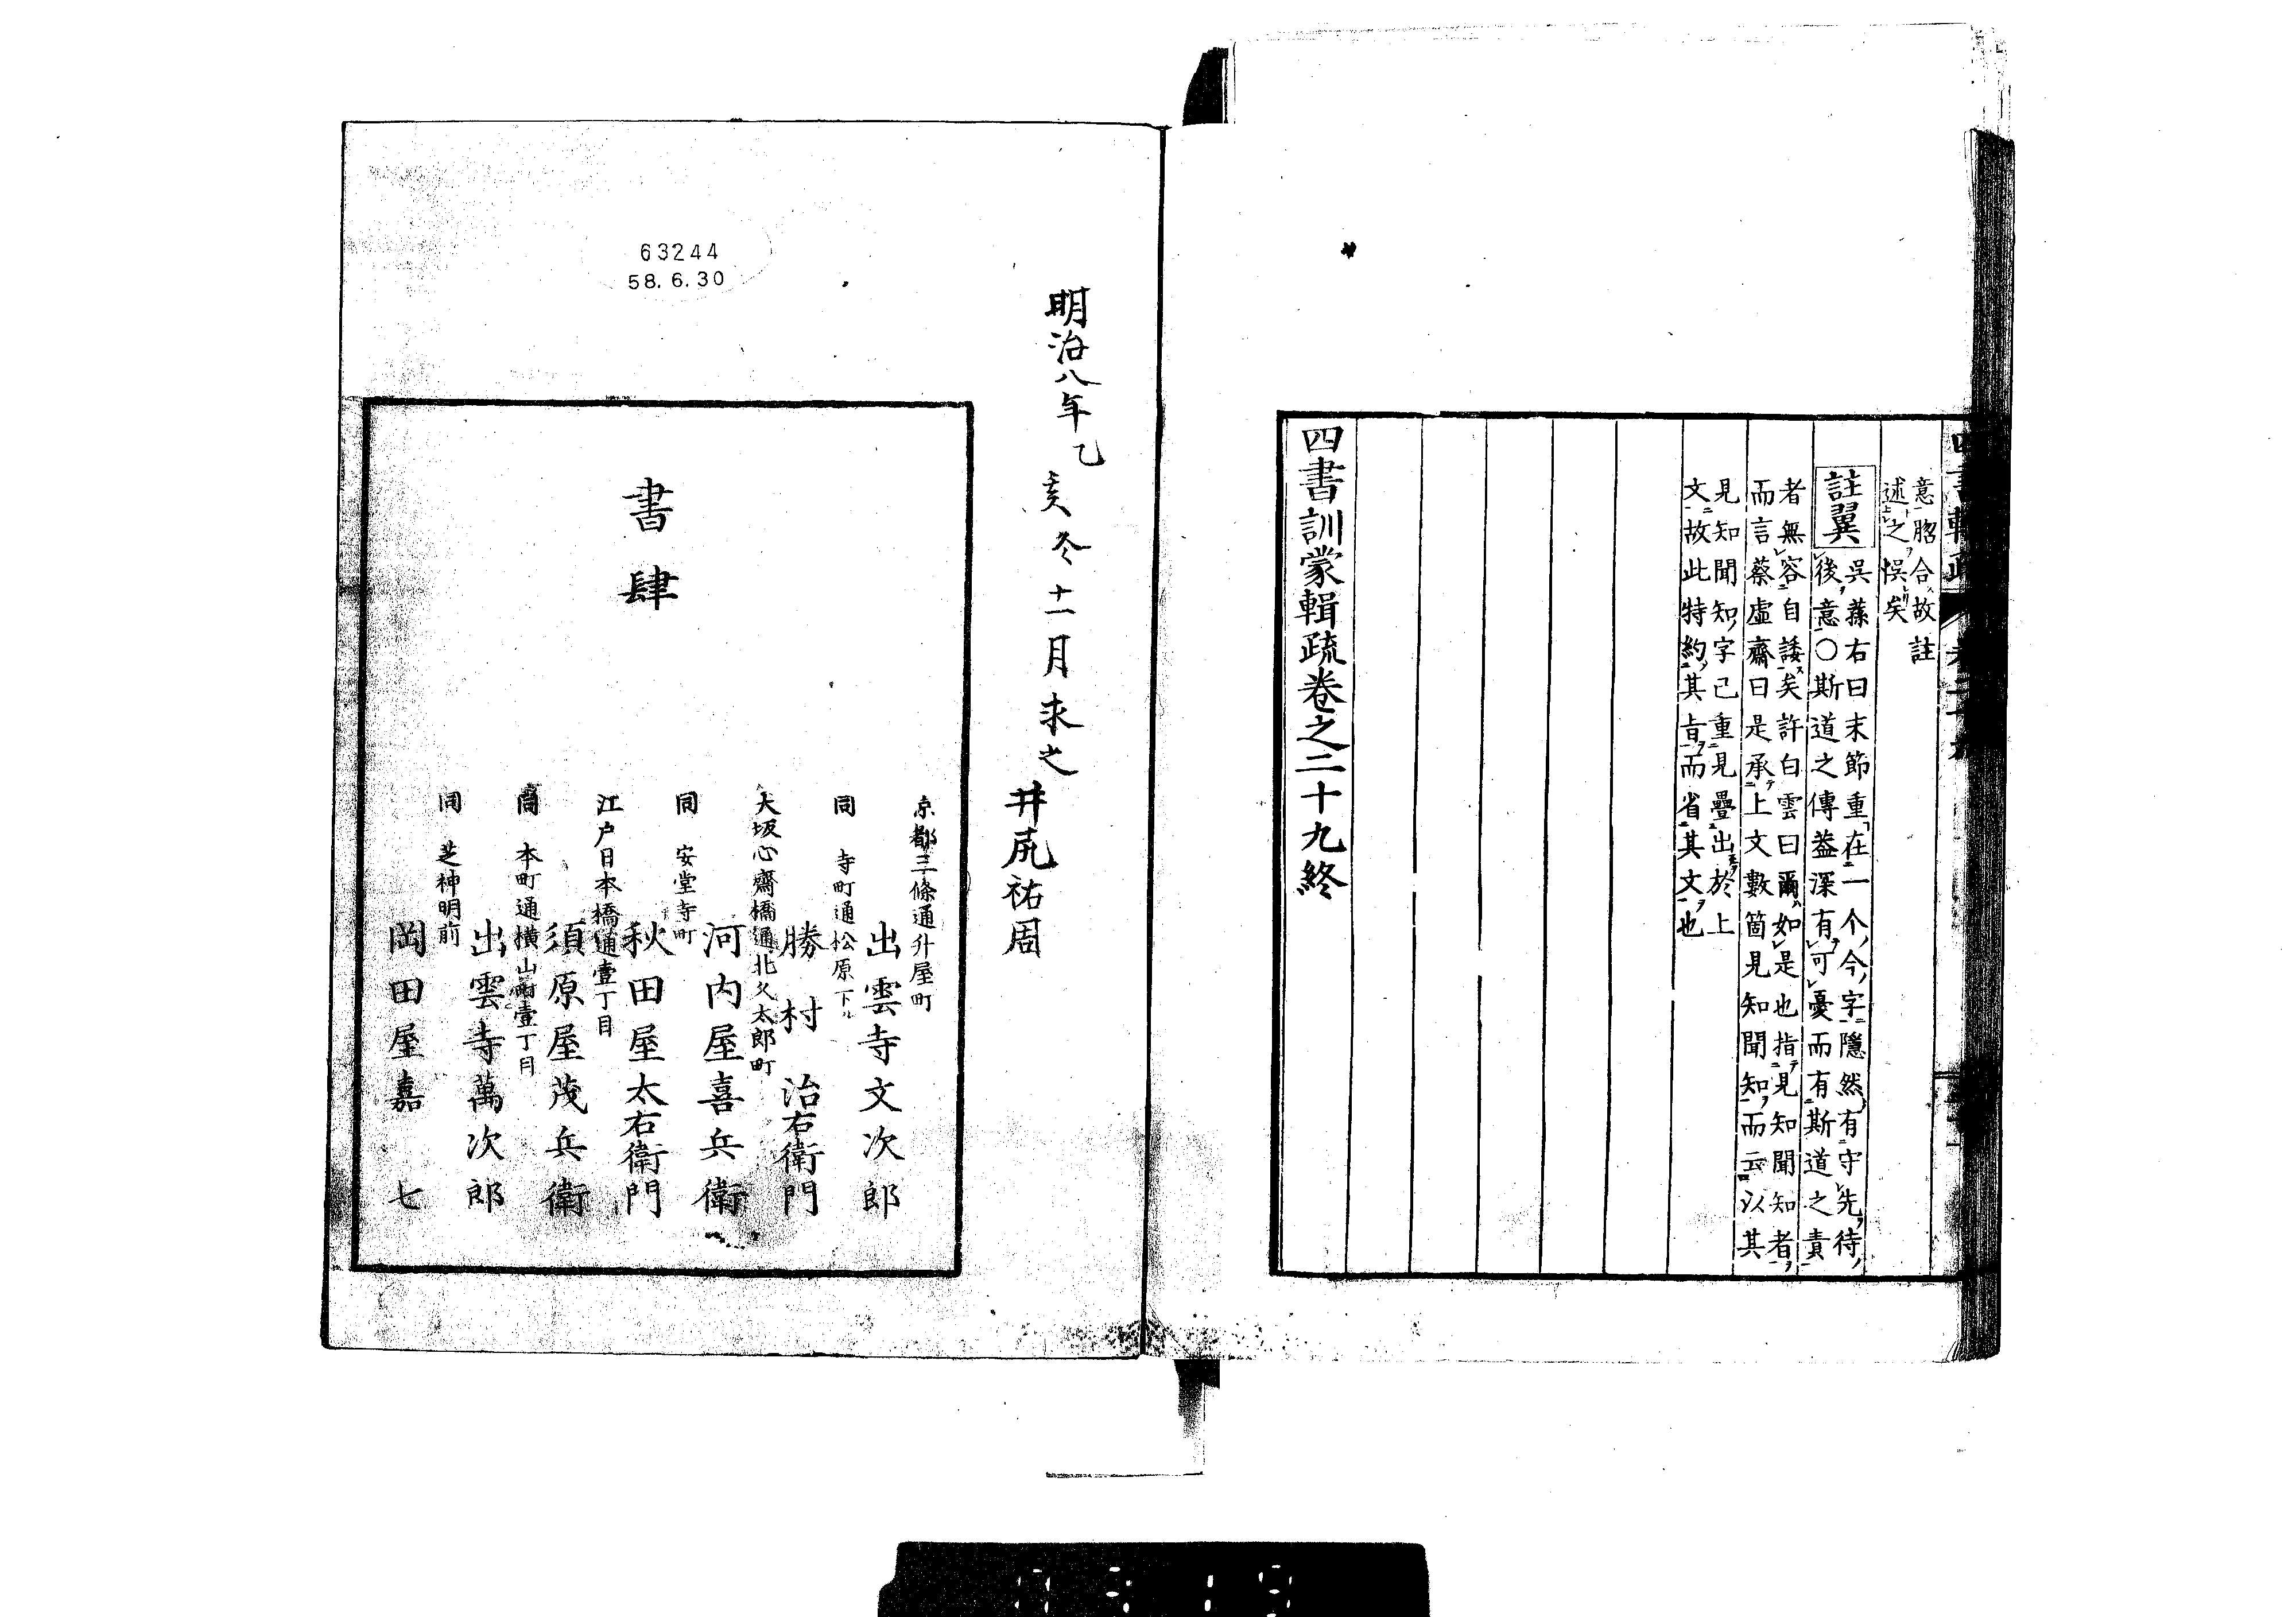 意脗合故註
述之悞矣
註翼
吳蓀右曰末節重在一个今字隱然有守先待
後意○斯道之傳葢深有可憂而有斯道之責
者無容自諉矣許白雲曰爾如是也指見知聞知者
而言蔡虛齋曰是承上文數箇見知聞知而云以其
見知聞知字已重見疊出於上
文故此特約其旨而省其文也
四書訓蒙輯疏卷之二十九終
明治八年乙亥冬十一月求之
井尻祐周
書肆
京都三條通升屋町
出雲寺文次郎
同 寺町通松原下ル
勝村治右衛門
大坂心齋橋通北久太郎町
河内屋喜兵衛
同 安堂寺町
秋田屋太右衛門
江戸日本橋通壹丁目
須原屋茂兵衛
同 本町通横山町壹丁目
出雲寺萬次郎
同 芝神明前
岡田屋嘉七
63244
58.6.30